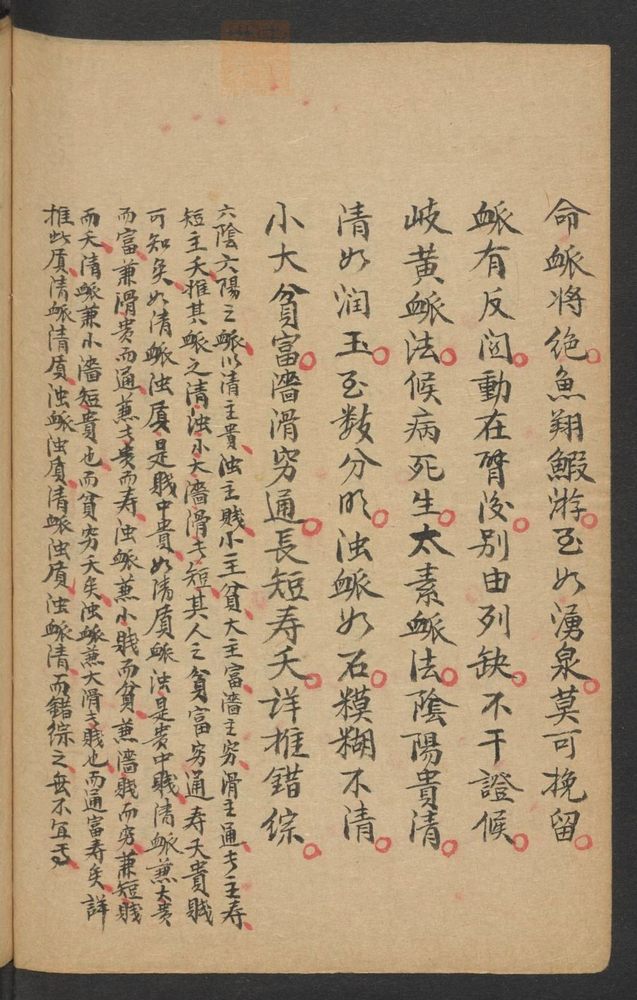 命脈将绝。魚翔鰕游。至如湧泉。莫可挽留。
脈有反関。動在臂後。別由列缺。不干證候。
岐黄脈法。候病死生。太素脈法。陰陽貴清。
清如润玉。至数分明。浊脈如石。糢糊不清。
小大貧富。濇滑穷通。長短寿夭。详推錯綜。
六陰六陽之脈、以清主貴、浊主贱、小主貧、大主富、濇主穷、滑主通、长主寿、
短主夭、推其脈之清浊小大濇滑长短、其人之貧富穷通寿夭貴贱
可知矣、如清脈浊质、是贱中貴、如清质脈浊、是贵中贱、清脈兼大贵
而富、兼滑贵而通、兼长贵而寿、浊脈兼小贱而貧、兼濇贱而穷、兼短贱
而夭、清脈兼小濇短貴也、而貧穷夭矣、浊脈兼大滑长贱也、而通富寿矣、詳
推此质清脈清、质浊脈浊、质清脈浊、质浊脈清、而錯综之、無不宜焉、